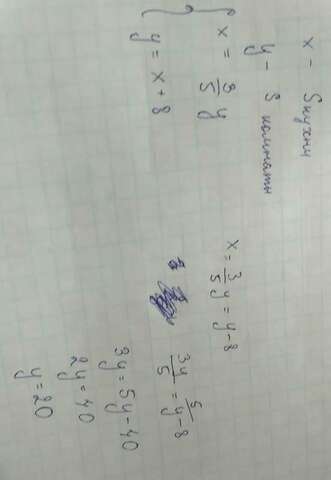 x - S кухни
y - S комнаты
{ x = 3/5 y
y = x + 8
x = 3/5 y = y - 8
3y/5 = y - 8 /5
3y = 5y - 40
2y = 40
y = 20